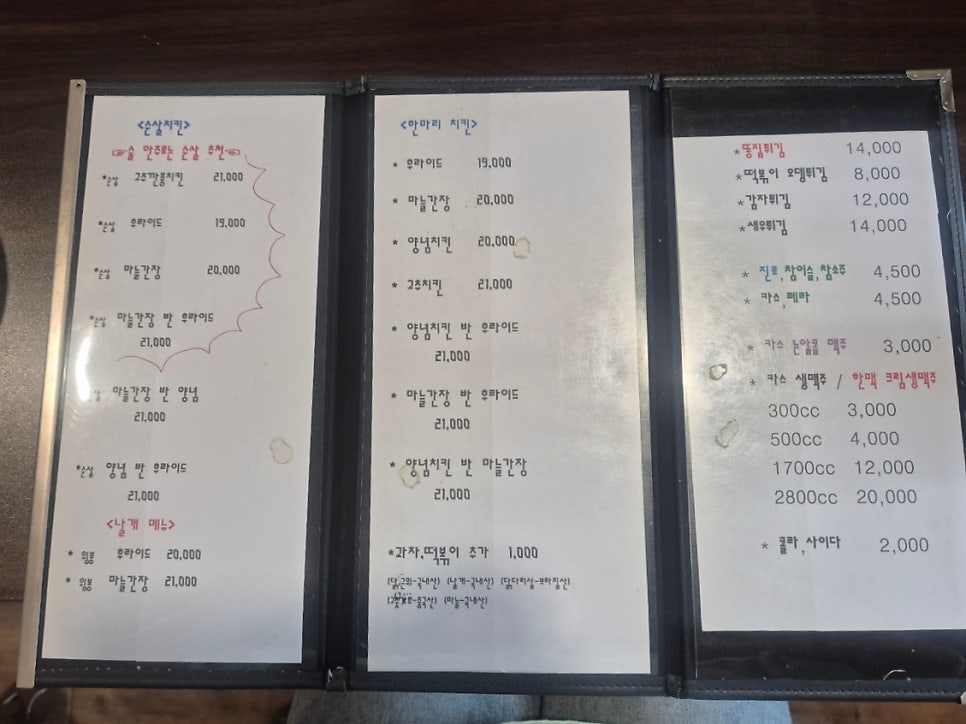 <순살치킨>
☞술 안주로는 순살 추천☜
*순살 고추깐풍치킨 21,000
*순살 후라이드 19,000
*순살 마늘간장 20,000
*순살 마늘간장 반 후라이드
21,000
마늘간장 반 양념
21,000
*순살 양념 반 후라이드
21,000
<날개 메뉴>
* 윙봉 후라이드 20,000
* 윙봉 마늘간장 21,000
<한마리 치킨>
* 후라이드 19,000
* 마늘간장 20,000
* 양념치킨 20,000
* 고추치킨 21,000
* 양념치킨 반 후라이드
21,000
* 마늘간장 반 후라이드
21,000
* 양념치킨 반 마늘간장
21,000
*과자,떡볶이 추가 1,000
(닭,근위-국내산) (날개-국내산) (닭다리살-브라질산)
(마늘-국내산)
*똥집튀김 14,000
*떡볶이 오뎅튀김 8,000
*감자튀김 12,000
*새우튀김 14,000
* 진로,참이슬,참소주 4,500
* 카스,테라 4,500
* 카스 논알콜 맥주 3,000
* 카스 생맥주 / 한맥 크림생맥주
300cc 3,000
500cc 4,000
1700cc 12,000
2800cc 20,000
* 콜라,사이다 2,000